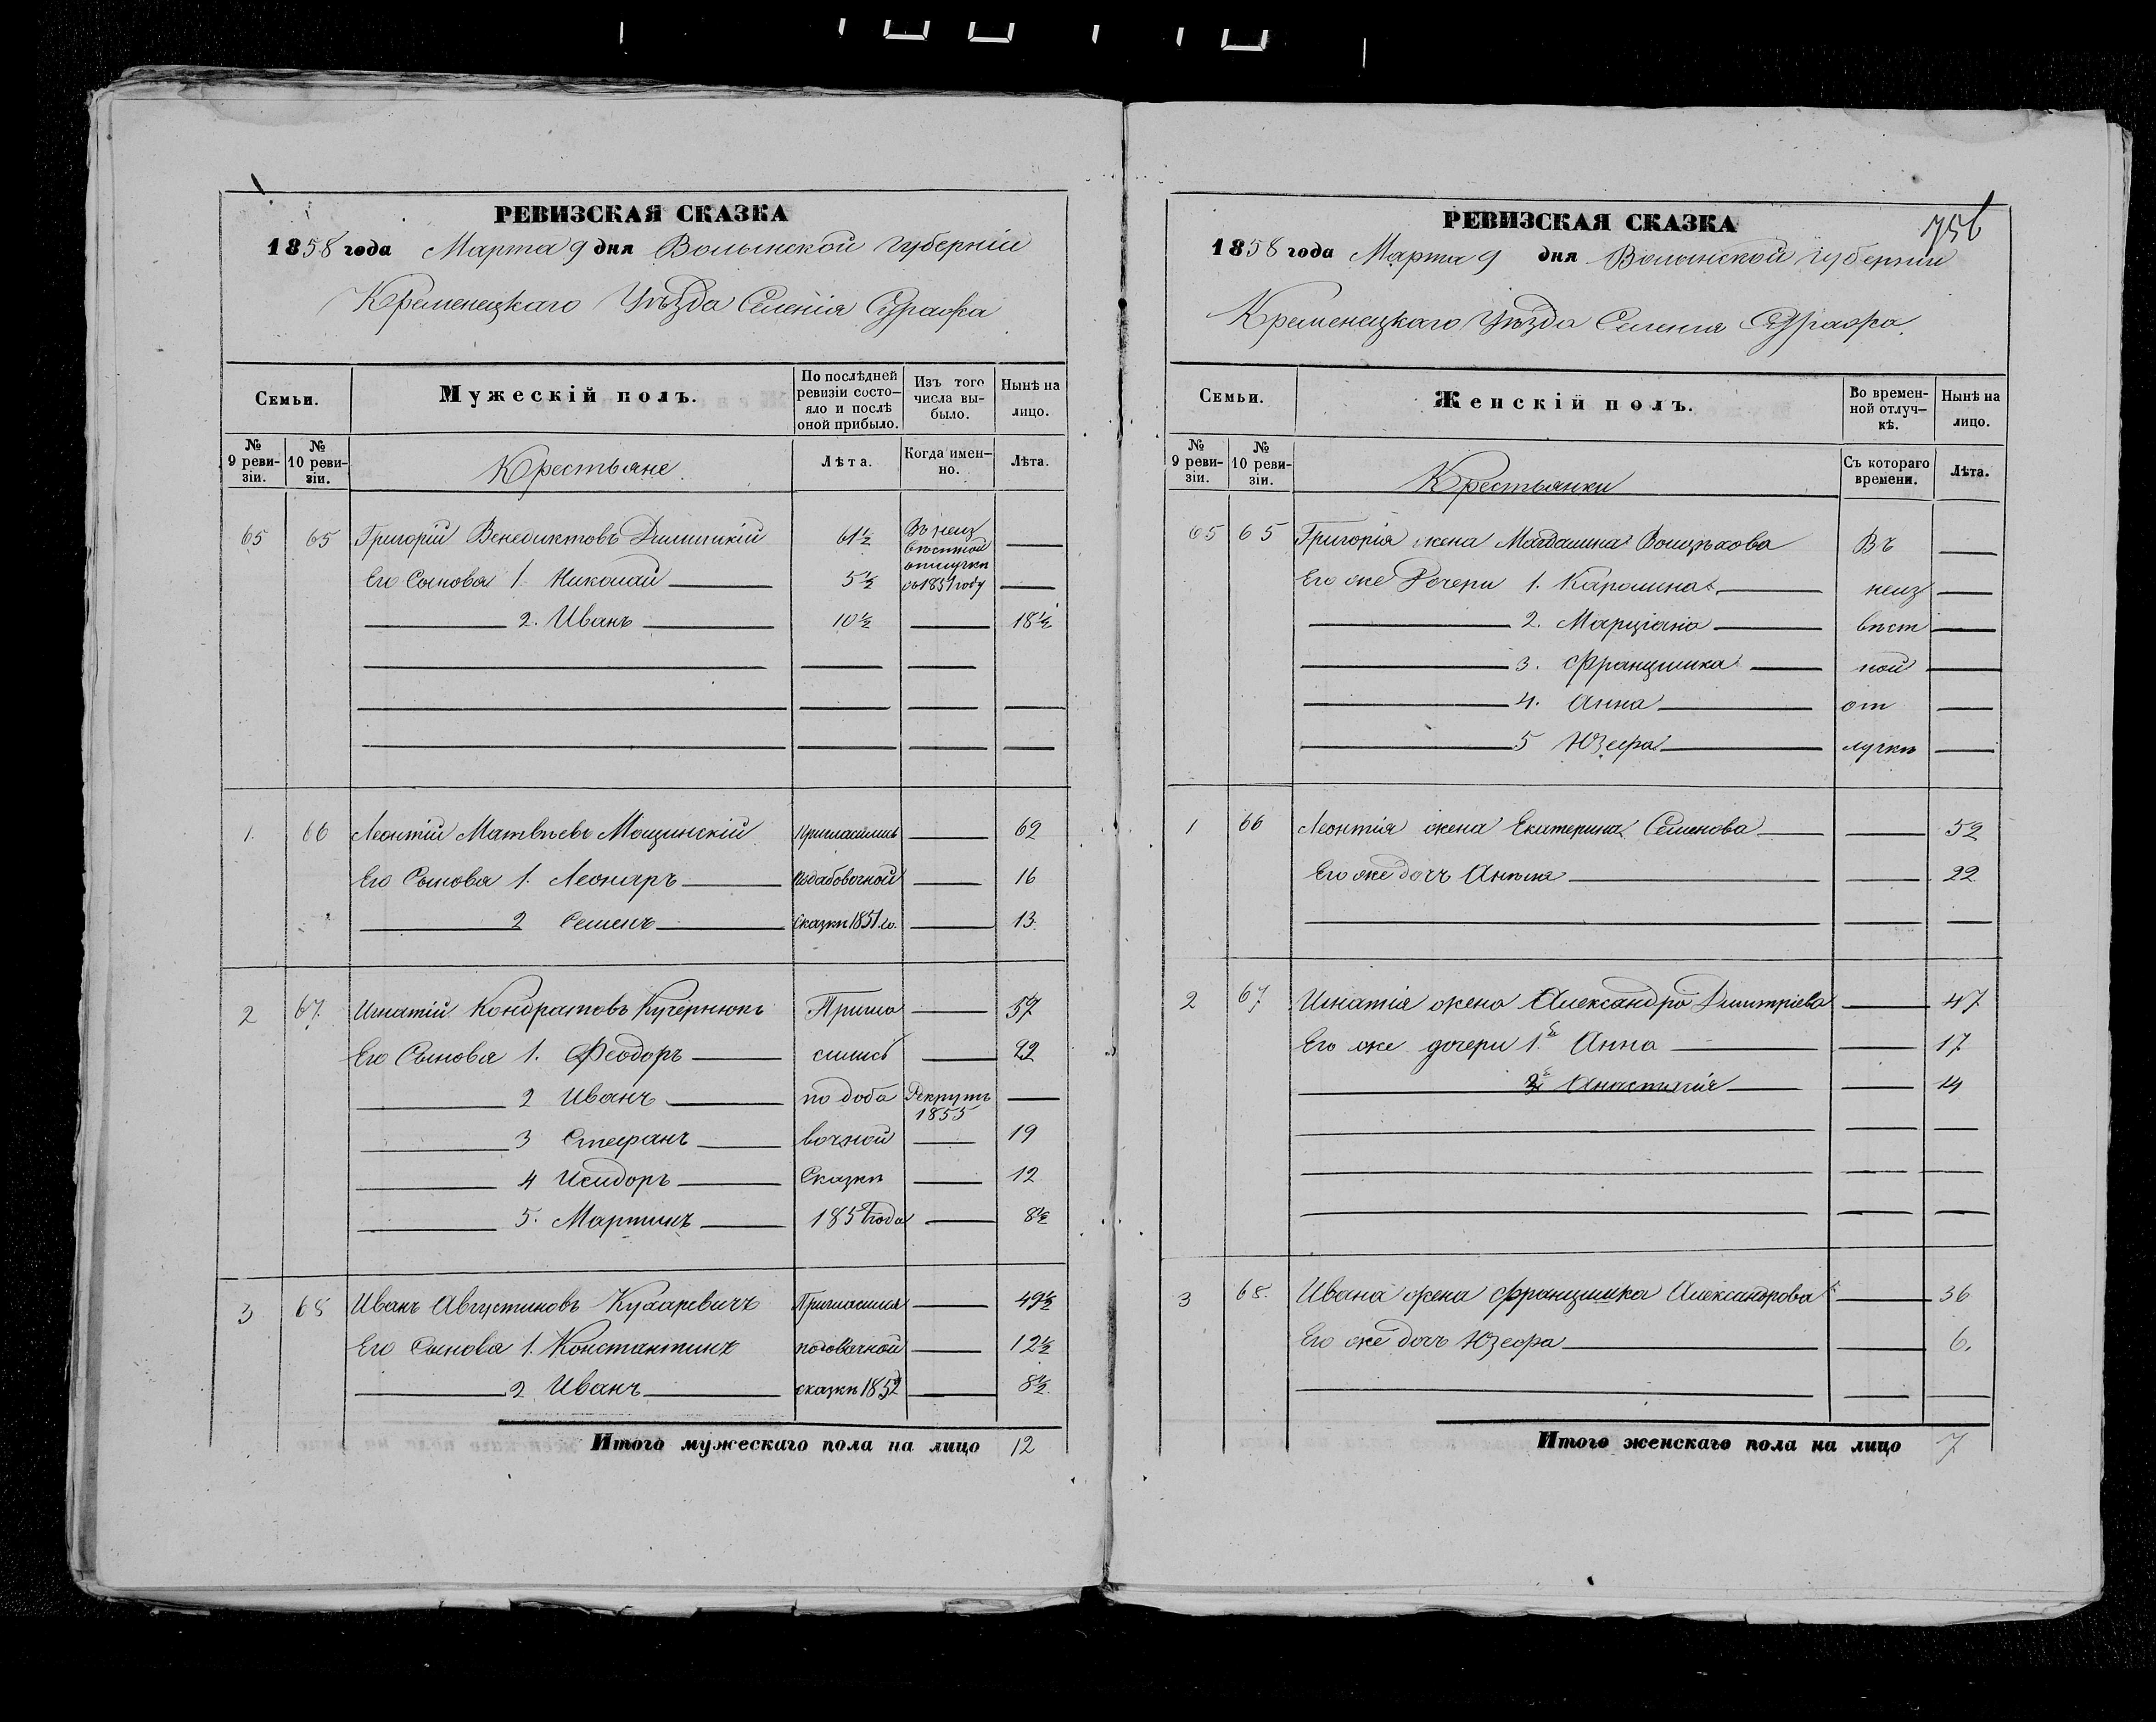 РЕВИЗСКАЯ СКАЗКА
1858 года Марта 9 дня Волынской губерніи
Кременецкаго Уѣзда Селенія Суража
Семьи.
Мужескій полъ.
По послѣдней ревизіи состояло и послѣ оной прибыло.
Изъ того числа выбыло.
Нынѣ на лицо.
№ 9 ревизіи.
№ 10 ревизіи.
Крестьяне
Лѣта.
Когда именно.
Лѣта.
65 65 Григорій Венедиктовъ 61½ Въ неизвѣстной отлучки съ 1851 году
Его Сыновья 1. Николай 5½
2. Иванъ 10½ 18½
1. 66 Леонтій Матвѣевъ Мощинскій Пригласились 62
Его Сыновья 1. Леонаръ подабовочной 16
2 Семенъ сказки 1851 го. 13
2 67 Игнатій Кондратовъ Кучернюкъ Пригла 57
Его Сыновья 1. Феодоръ сились 22
2 Иванъ по доба Рекрутъ 1855
3 Стефанъ вочной 19
4 Исидоръ Сказки 12
5. Мартинъ 1851 года 8½
3 68 Иванъ Августиновъ Кухаревичъ Пригласился 49½
Его Сыновья 1. Константинъ 12½
2 Иванъ сказки 1852 8½
Итого мужескаго пола на лицо 12
756
РЕВИЗСКАЯ СКАЗКА
1858 года Марта 9 дня Волынской губерніи
Кременецкаго Уѣзда Селенія Суража
Семьи.
Женскій полъ.
Во временной отлучкѣ.
Нынѣ на лицо.
№ 9 ревизіи.
№ 10 ревизіи.
Крестьянки
Съ котораго времени.
Лѣта.
65 65 Григорія жена Магдалина Въ
Его же Дочери 1. Каролина неиз
2. Марціяна вѣст
3. Францишка ной
4. Анна от
5 Юзефа лучкѣ
1 66 Леонтія жена Екатерина Семенова 52
Его же дочь 22
2 67 Игнатія жена Александра Дмитріева 47
Его же дочери 1я Анна 17
2я Анастасія 14
3 68. Ивана жена Францишка Александрова 36
Его же дочь Юзефа 6.
Итого женскаго пола на лицо 7